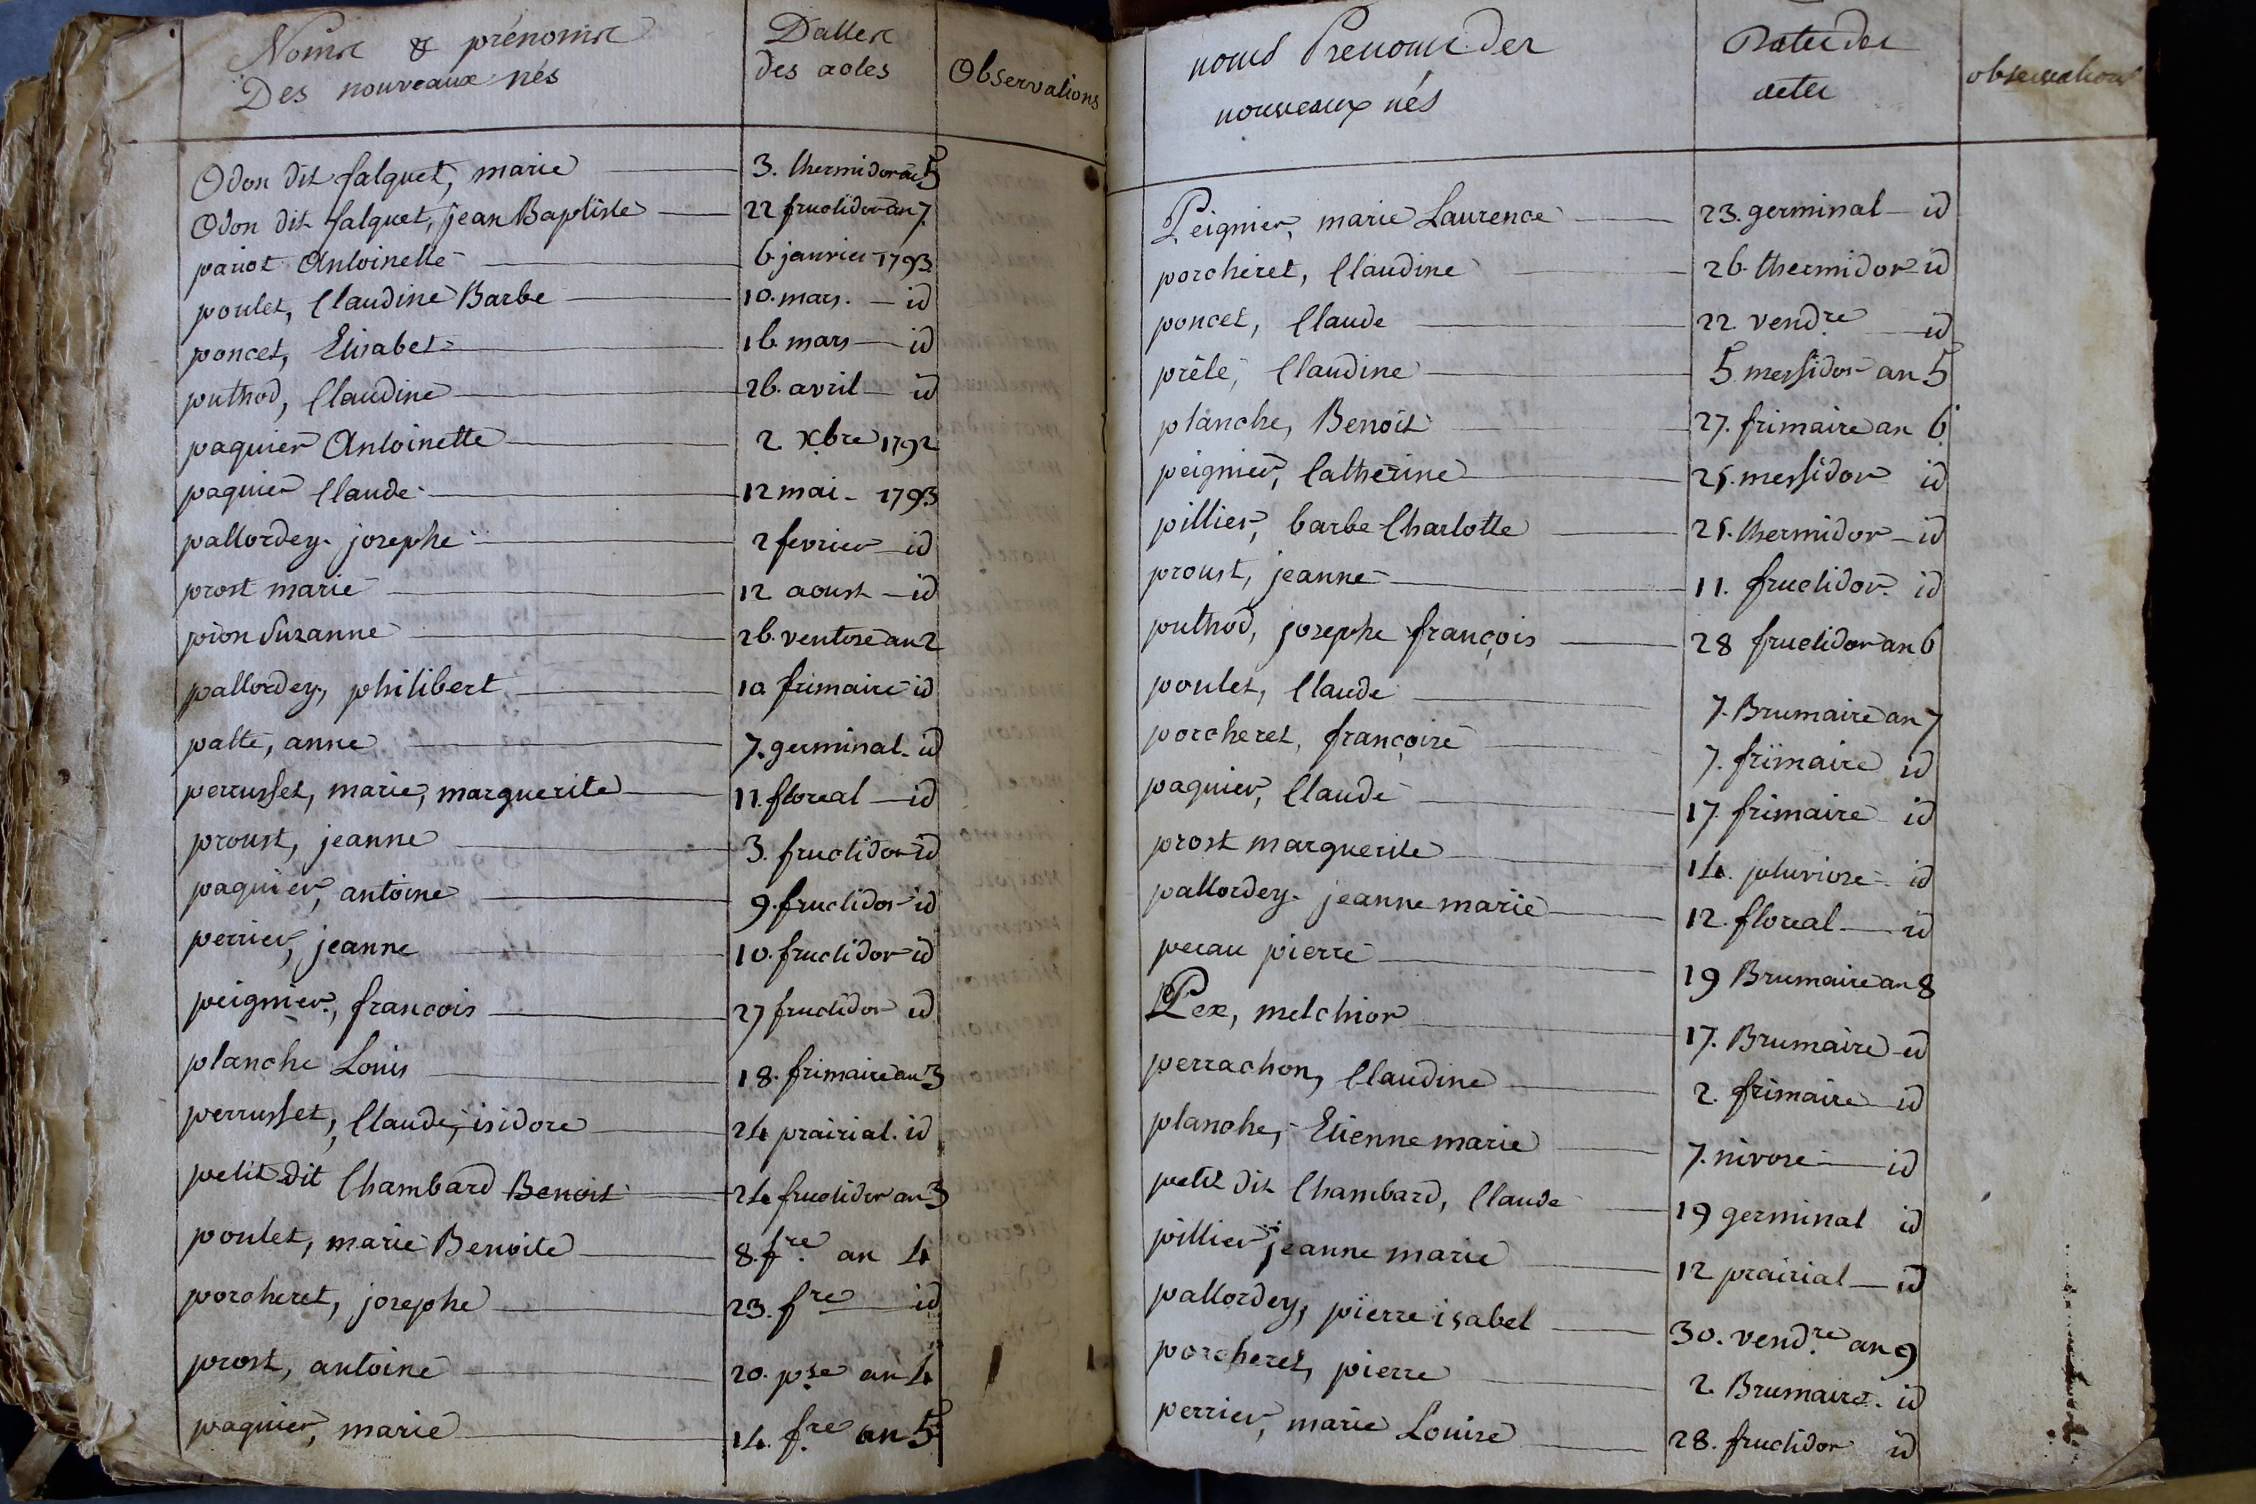 Noms & prénoms
Des nouveaux nés
Dattes
des actes
Observations
Odon dit falquet, marie 3. thermidor an 5
Odon dit falquet, jean Baptiste 22 fructidor an 7
pariot Antoinette 6 janvier 1793
poulet, Claudine Barbe 10. mars. id
poncet, Elisabet 16 mars id
puthod, Claudine 26. avril id
paquier Antoinette 2 Xbre 1792
paquier Claude 12 mai 1793
pallordey josephe 2 fevrier id
prost marie 12 aoust id
pion Suzanne 26. ventose an 2
pallordey, philibert 10 frimaire id
patte, anne 7. germinal id
perrusset, marie, marguerite 11. floreal id
proust, jeanne 3. fructidor id
paquier, antoine 9. fructidor id
perrier, jeanne 10. fructidor id
peignier, francois 27 fructidor id
planche Louis 18. frimaire an 3
perrusset, Claude, isidore 24 prairial. id
petit dit Chambard Benoit 24 fructidor an 3
poulet, marie Benoite 8. fre. an 4
porcheret, josephe 23. fre id
prost, antoine 20. pse an 4
paquier, marie 14. fre an 5
noms Prenoms des
nouveaux nés
Dates des
actes
observations
Peignier, marie Laurence 23. germinal id
porcheret, Claudine 26. thermidor id
poncet, Claude 22 vendre id
prêle, Claudine 5 messidor an 5
planche, Benoit 27. frimaire an 6
peignier, Catherine 25. messidor id
pillier, barbe Charlotte 25. thermidor id
proust, jeanne 11. fructidor. id
puthod, josephe françois 28 fructidor an 6
poulet, Claude 7. Brumaire an 7
porcheret, françoise 7. frimaire id
paquier, Claude 17. frimaire id
prost marguerite 14. pluviose id
pallordey. jeanne marie 12. floreal id
pecau pierre 19 Brumaire an 8
Pex, melchior 17. Brumaire id
perrachon, Claudine 2. frimaire id
planche, Etienne marie 7. nivose id
petit dit Chambard, Claude 19 germinal id
pillier jeanne marie 12 prairial id
pallordey, pierre isabel 30. vendre an 9
porcheret, pierre 2. Brumaire. id
perrier, marie Louise 28. fructidor id